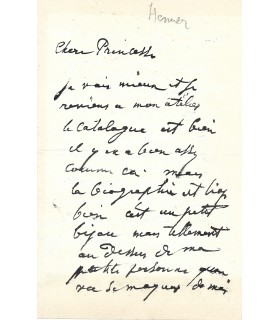 Henner
Chere Princesse
je vais mieux et je
reviens a mon atelier
le catalogue est bien
il y en a bien assez
comme ca. mais
la biographie est très
bien c'est un petit
bijou mais tellement
au dessus de ma
petite personne qu'on
va se moquer de moi